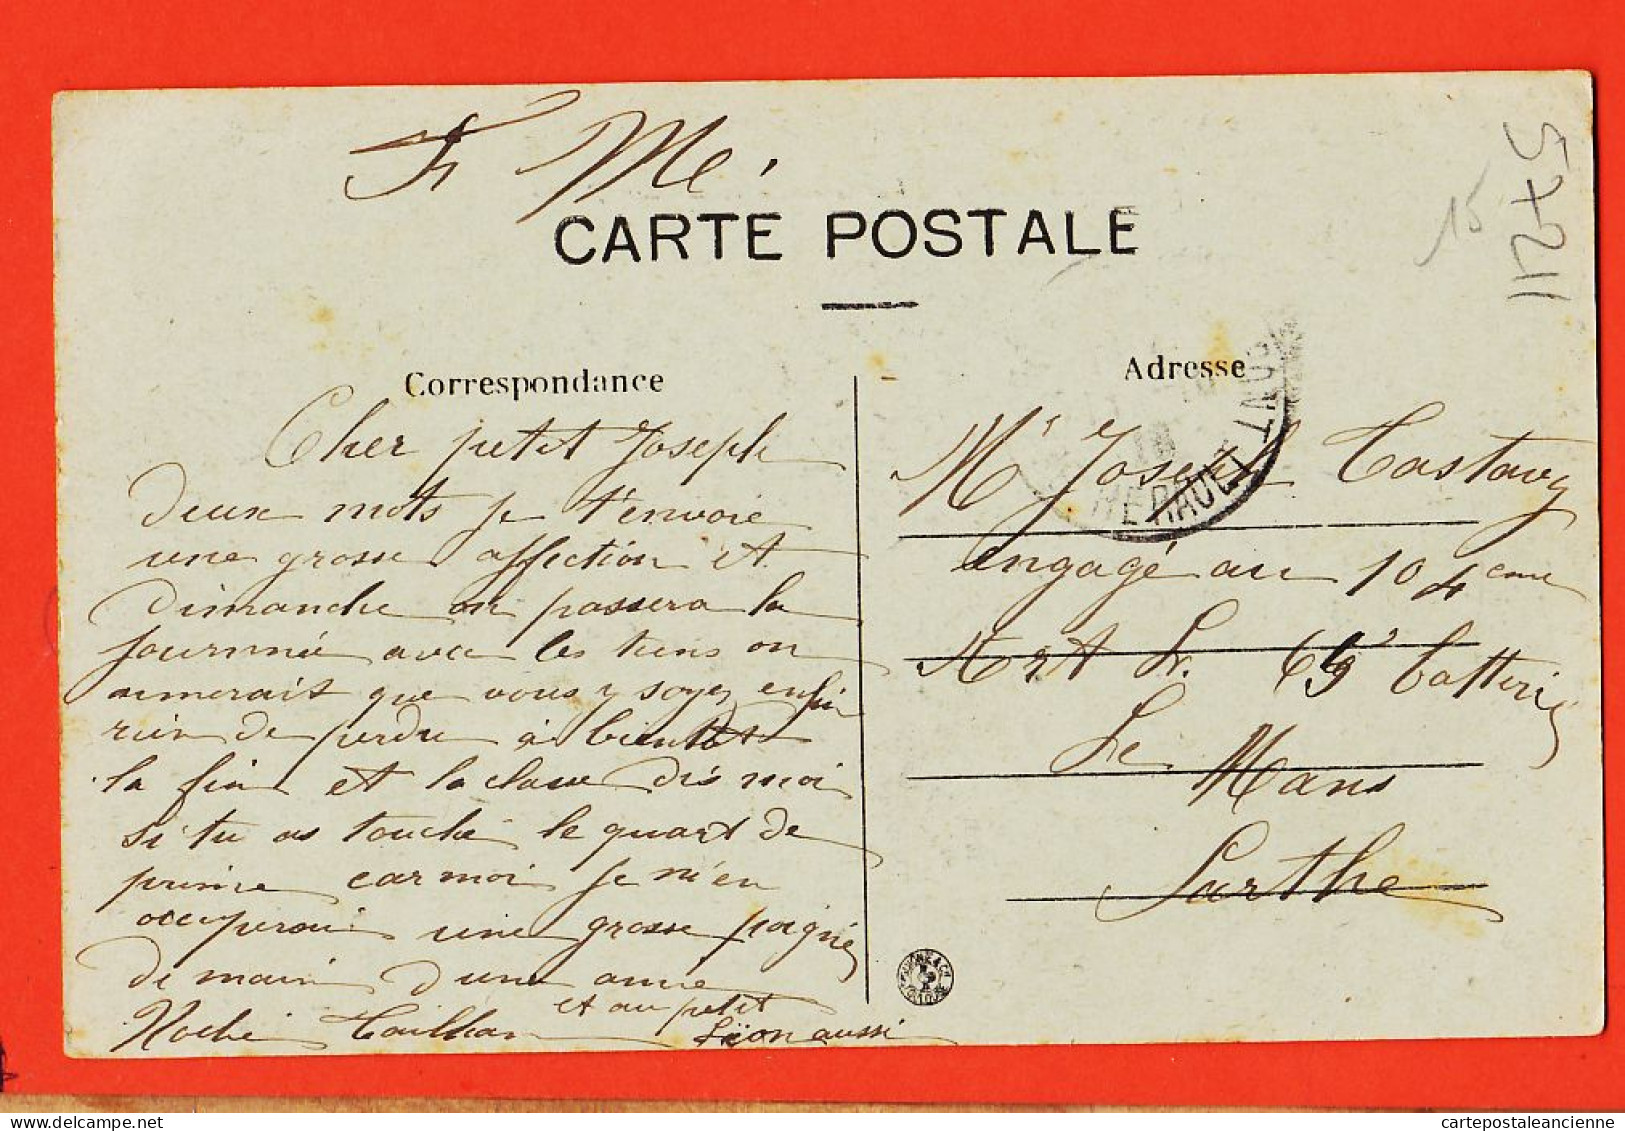 F. M.
CARTE POSTALE
Correspondance
Adresse
15
57211
HERAULT
Cher petit Joseph
deux mots je t'envoie
une grosse affection et
Dimanche on passera la
journné avec les tiens on
aimerait que vous y soyez enfin
rien de perdu à bientot
la fin et la classe dis moi
si tu as touché le quart de
prime car moi je m'en
occuperai une grosse poigné
de main d'une amie
et au petit
Léon aussi
Mr Joseph Castang
engagé au 104eme
Art L. 69 batterie
Le Mans
Sarthe
cartepostaleancienne.com